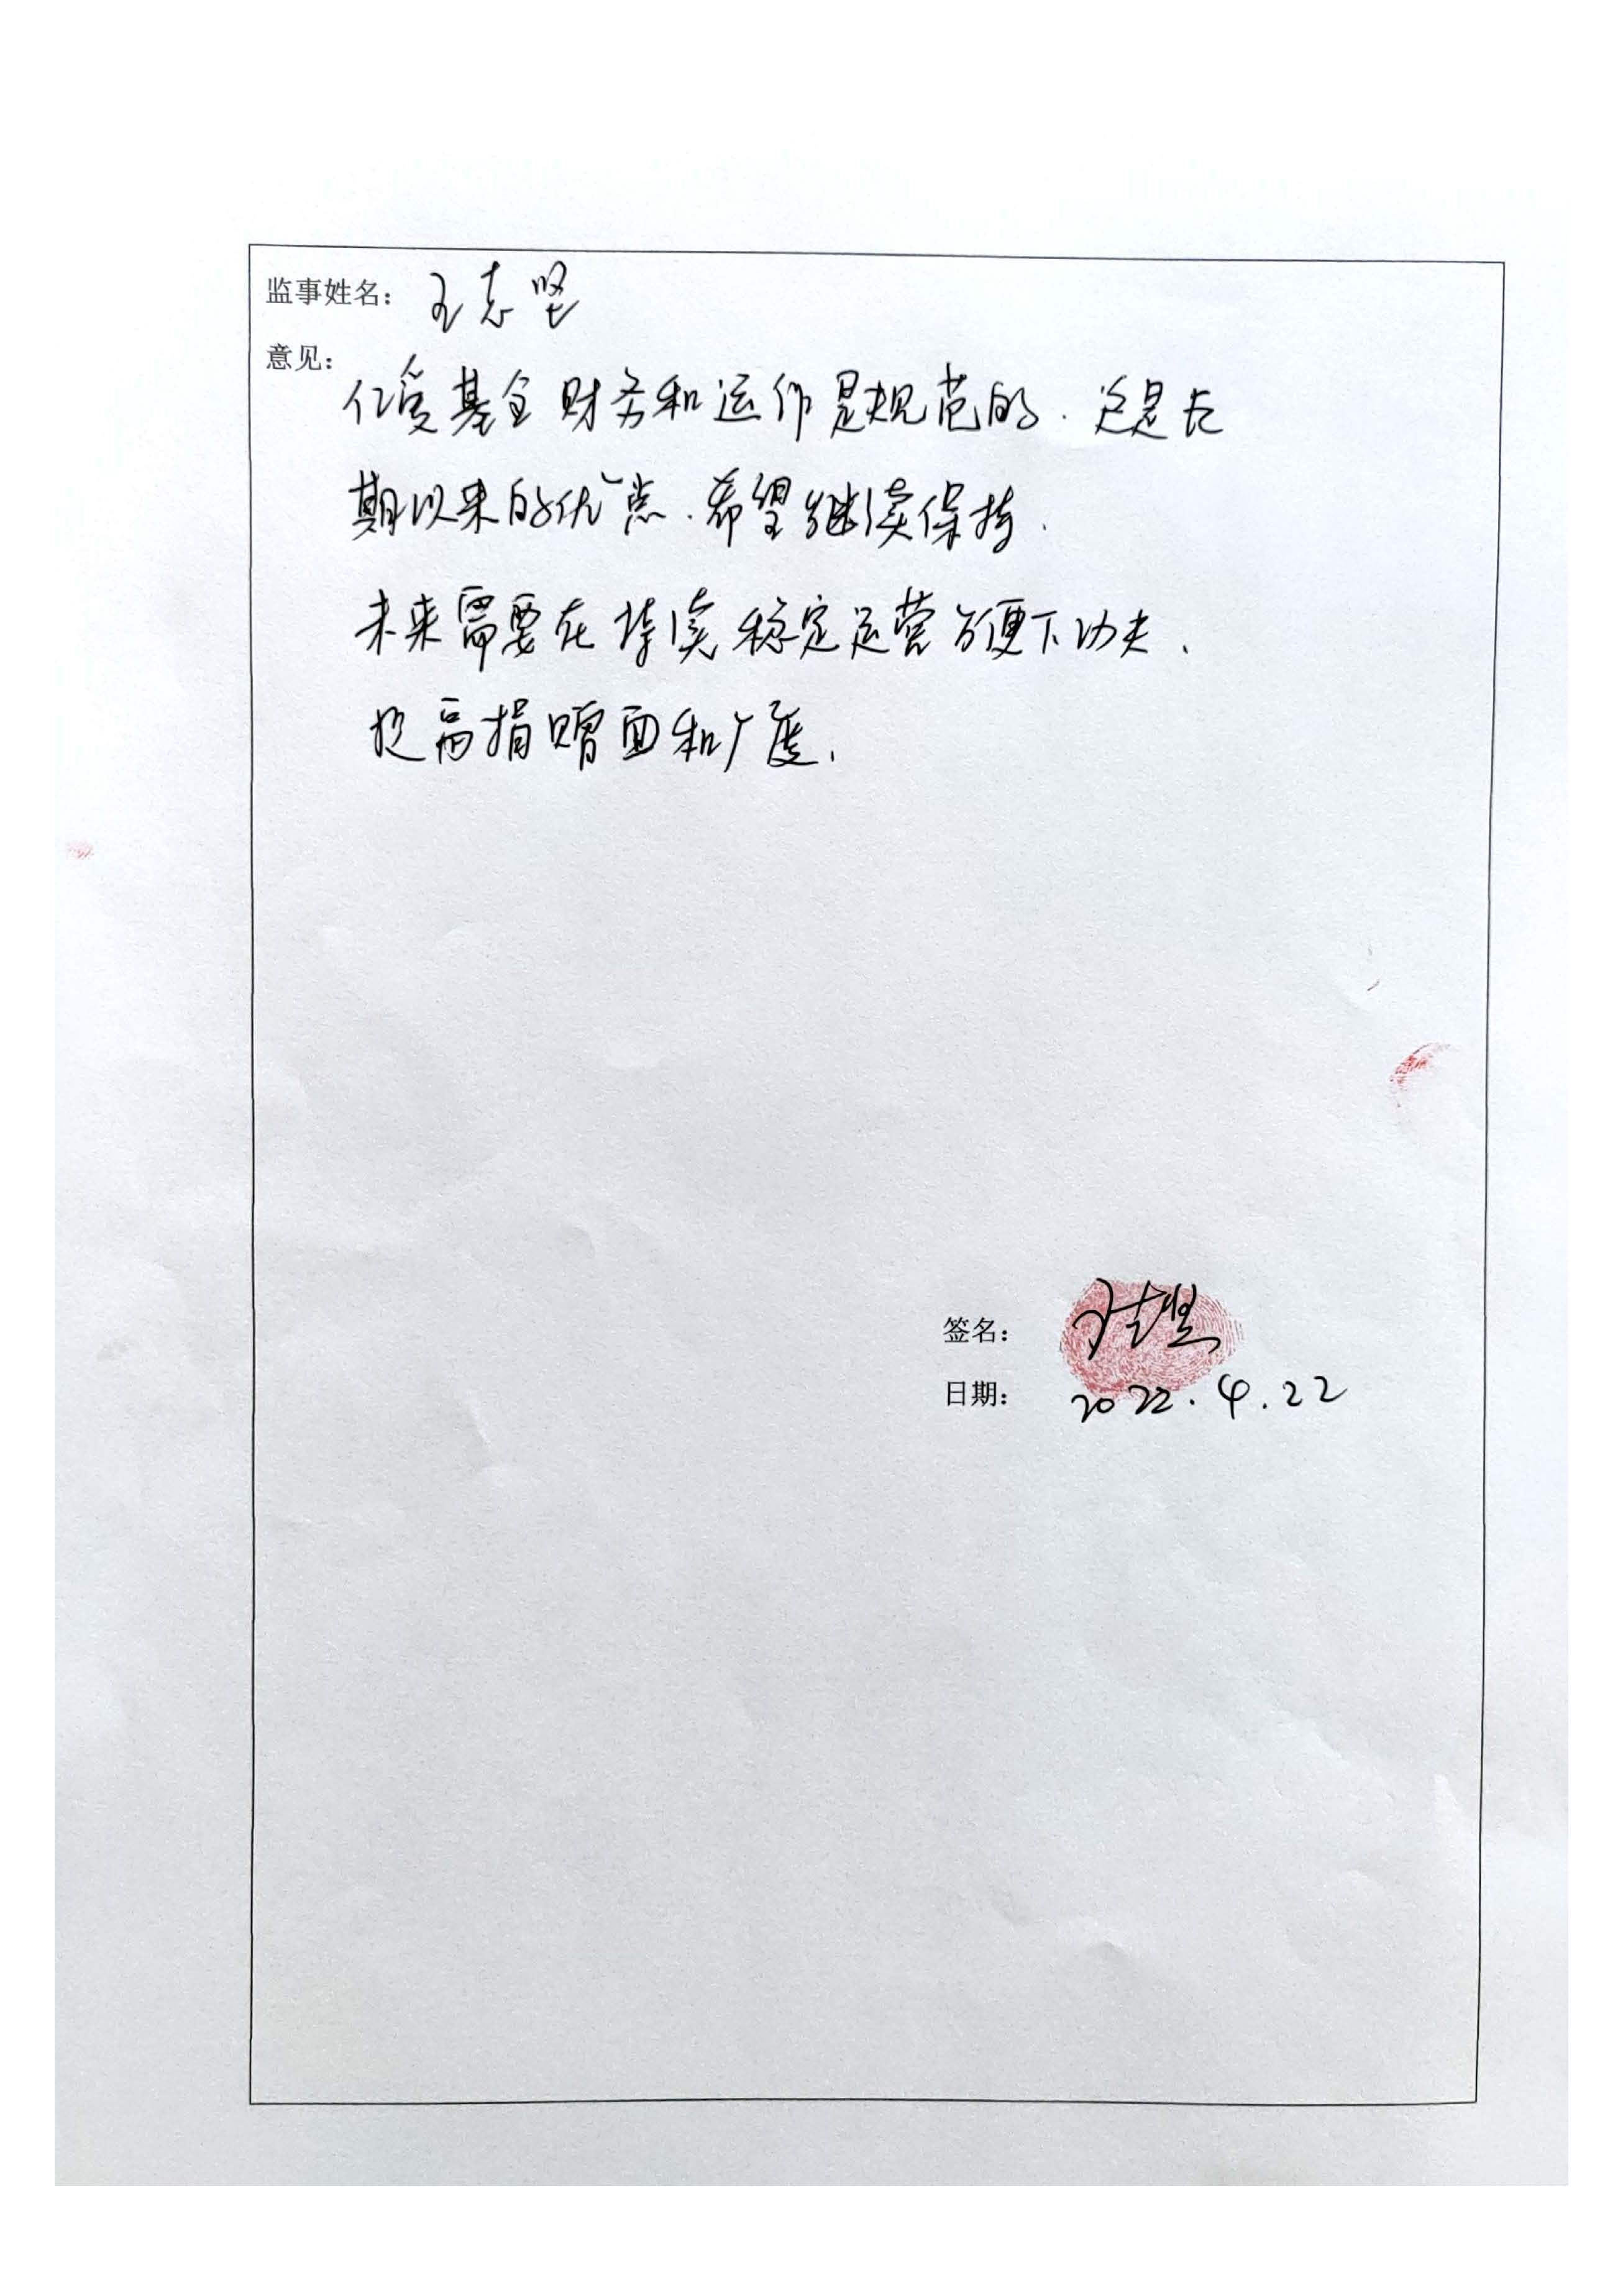 监事姓名：王志坚
意见：
亿爱基金财务和运作是规范的.这是长
期以来的优点.希望继续保持.
未来需要在持续稳定运营方便下功夫.
提高捐赠面和广度.
签名：王志坚
日期：2022.4.22